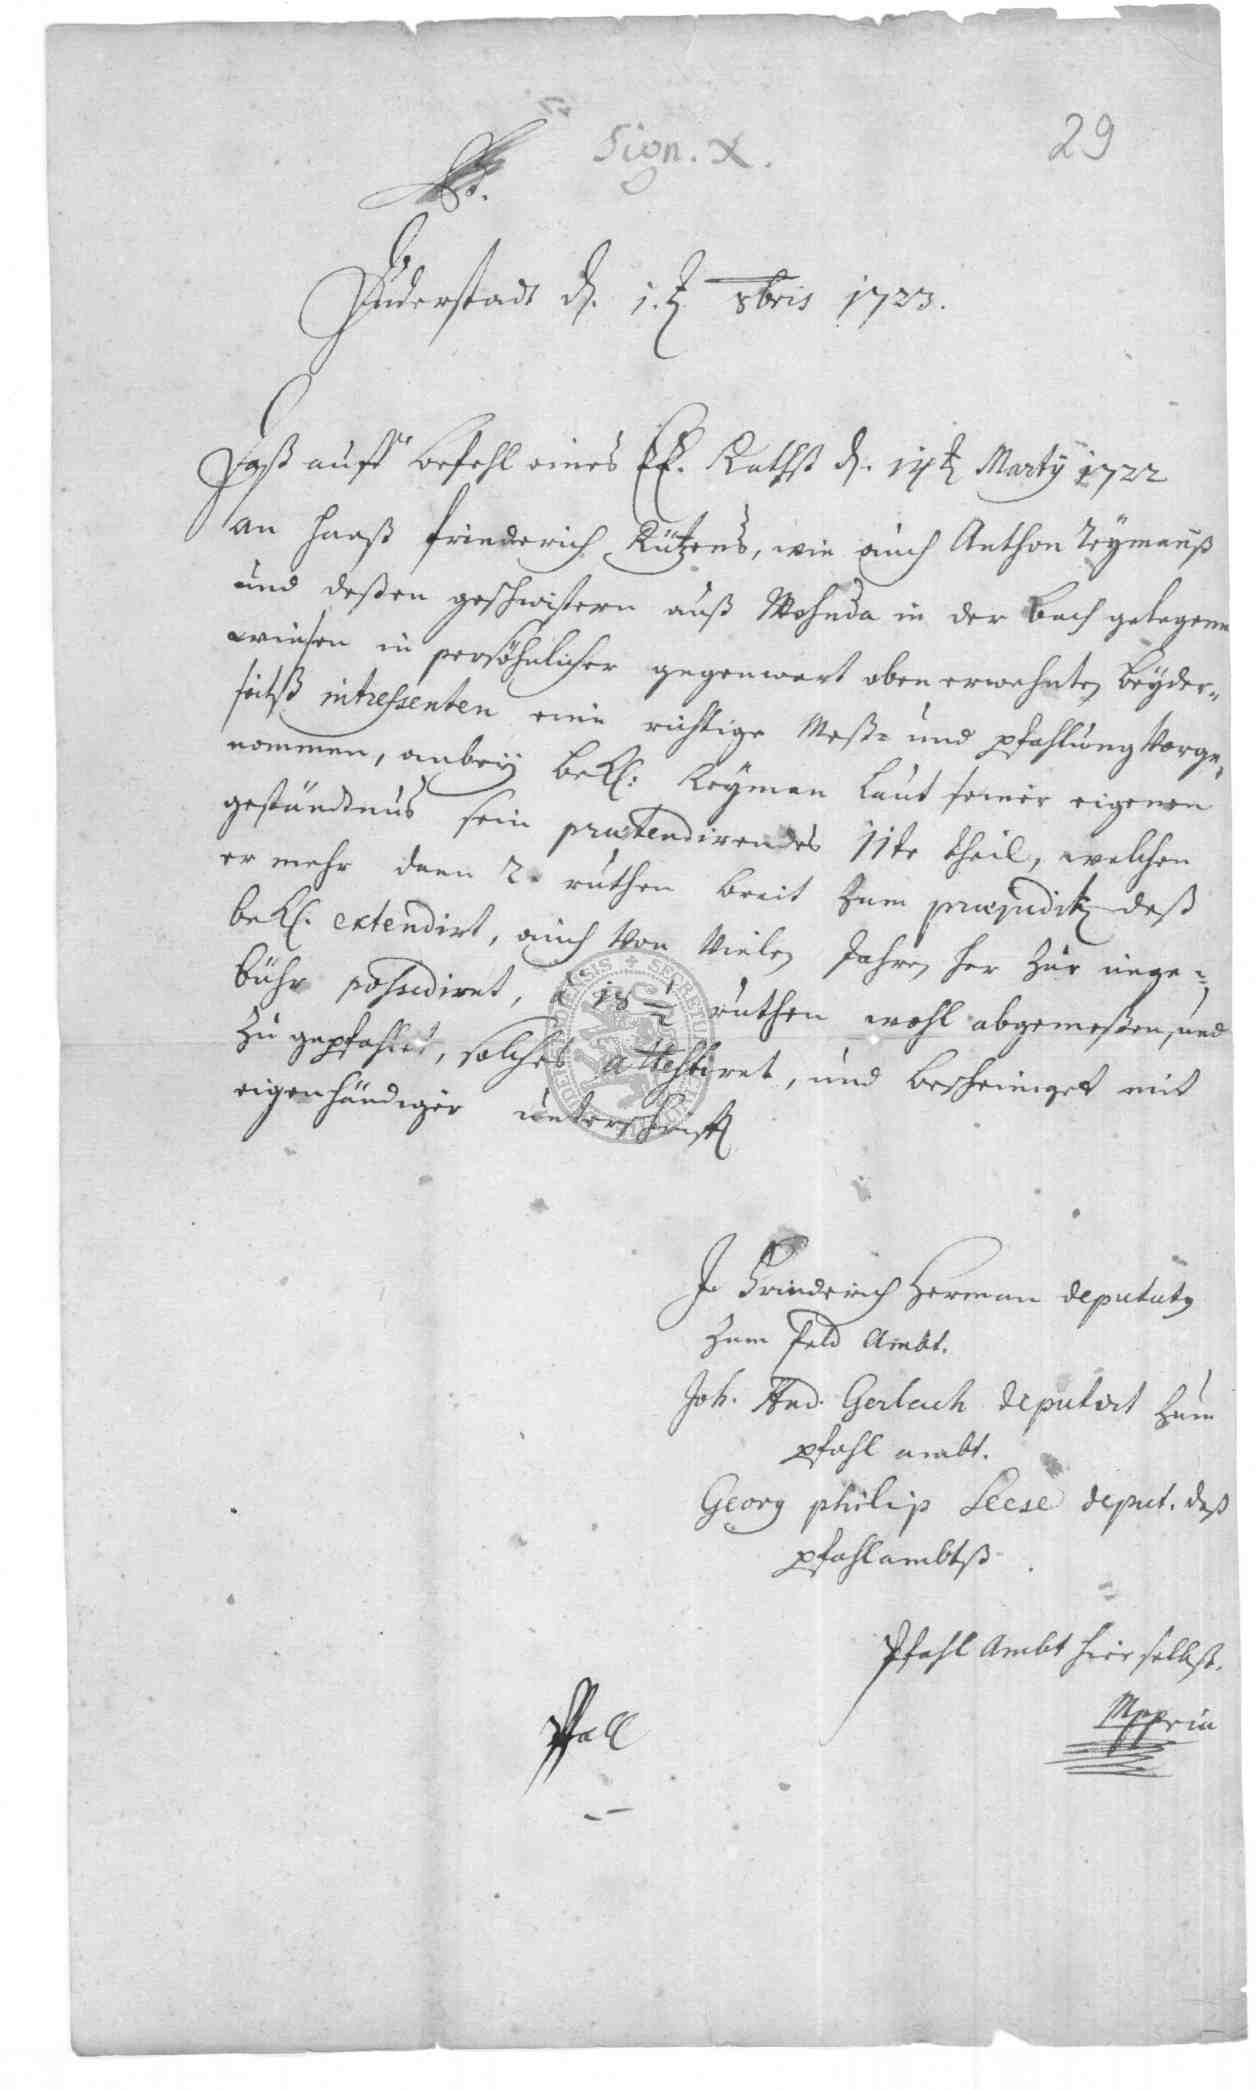 29
Sign. X.
Duderstadt d. 1.t 8bris 1723.
Daß auff befehl eines EE. Rathß d. 14t Marty 1722
an Hanß Friederich Kützens, wie auch Anthon
und deßen geschwistern auß in der bach gelegene
wiesen in persöhnlicher gegenwart oben erwehnten beyder-
seitß intressenten eine richtige Meß- und pfahlung vorge-
nommen, anbey bekl: laut seiner eigenen
geständnus sein praetendirendes 11te theil, welchen
er mehr dann 2. ruthen breit zum praejuditz deß
bekl. extendirt, auch von vielen Jahren her zur unge-
bühr possediret, 18 ruthen wohl abgemeßen, und
zu gepfahlet, solches attestiret, und bescheiniget mit
eigenhändiger unterschrifft
J. Friederich Herman deputatg
zum feld Ambt.
Joh. And. Gerlach deputirt zum
pfahl ambt.
Georg philip Leese deput. deß
pfahlambtß
Pfahl Ambt hierselbst.
Mppria